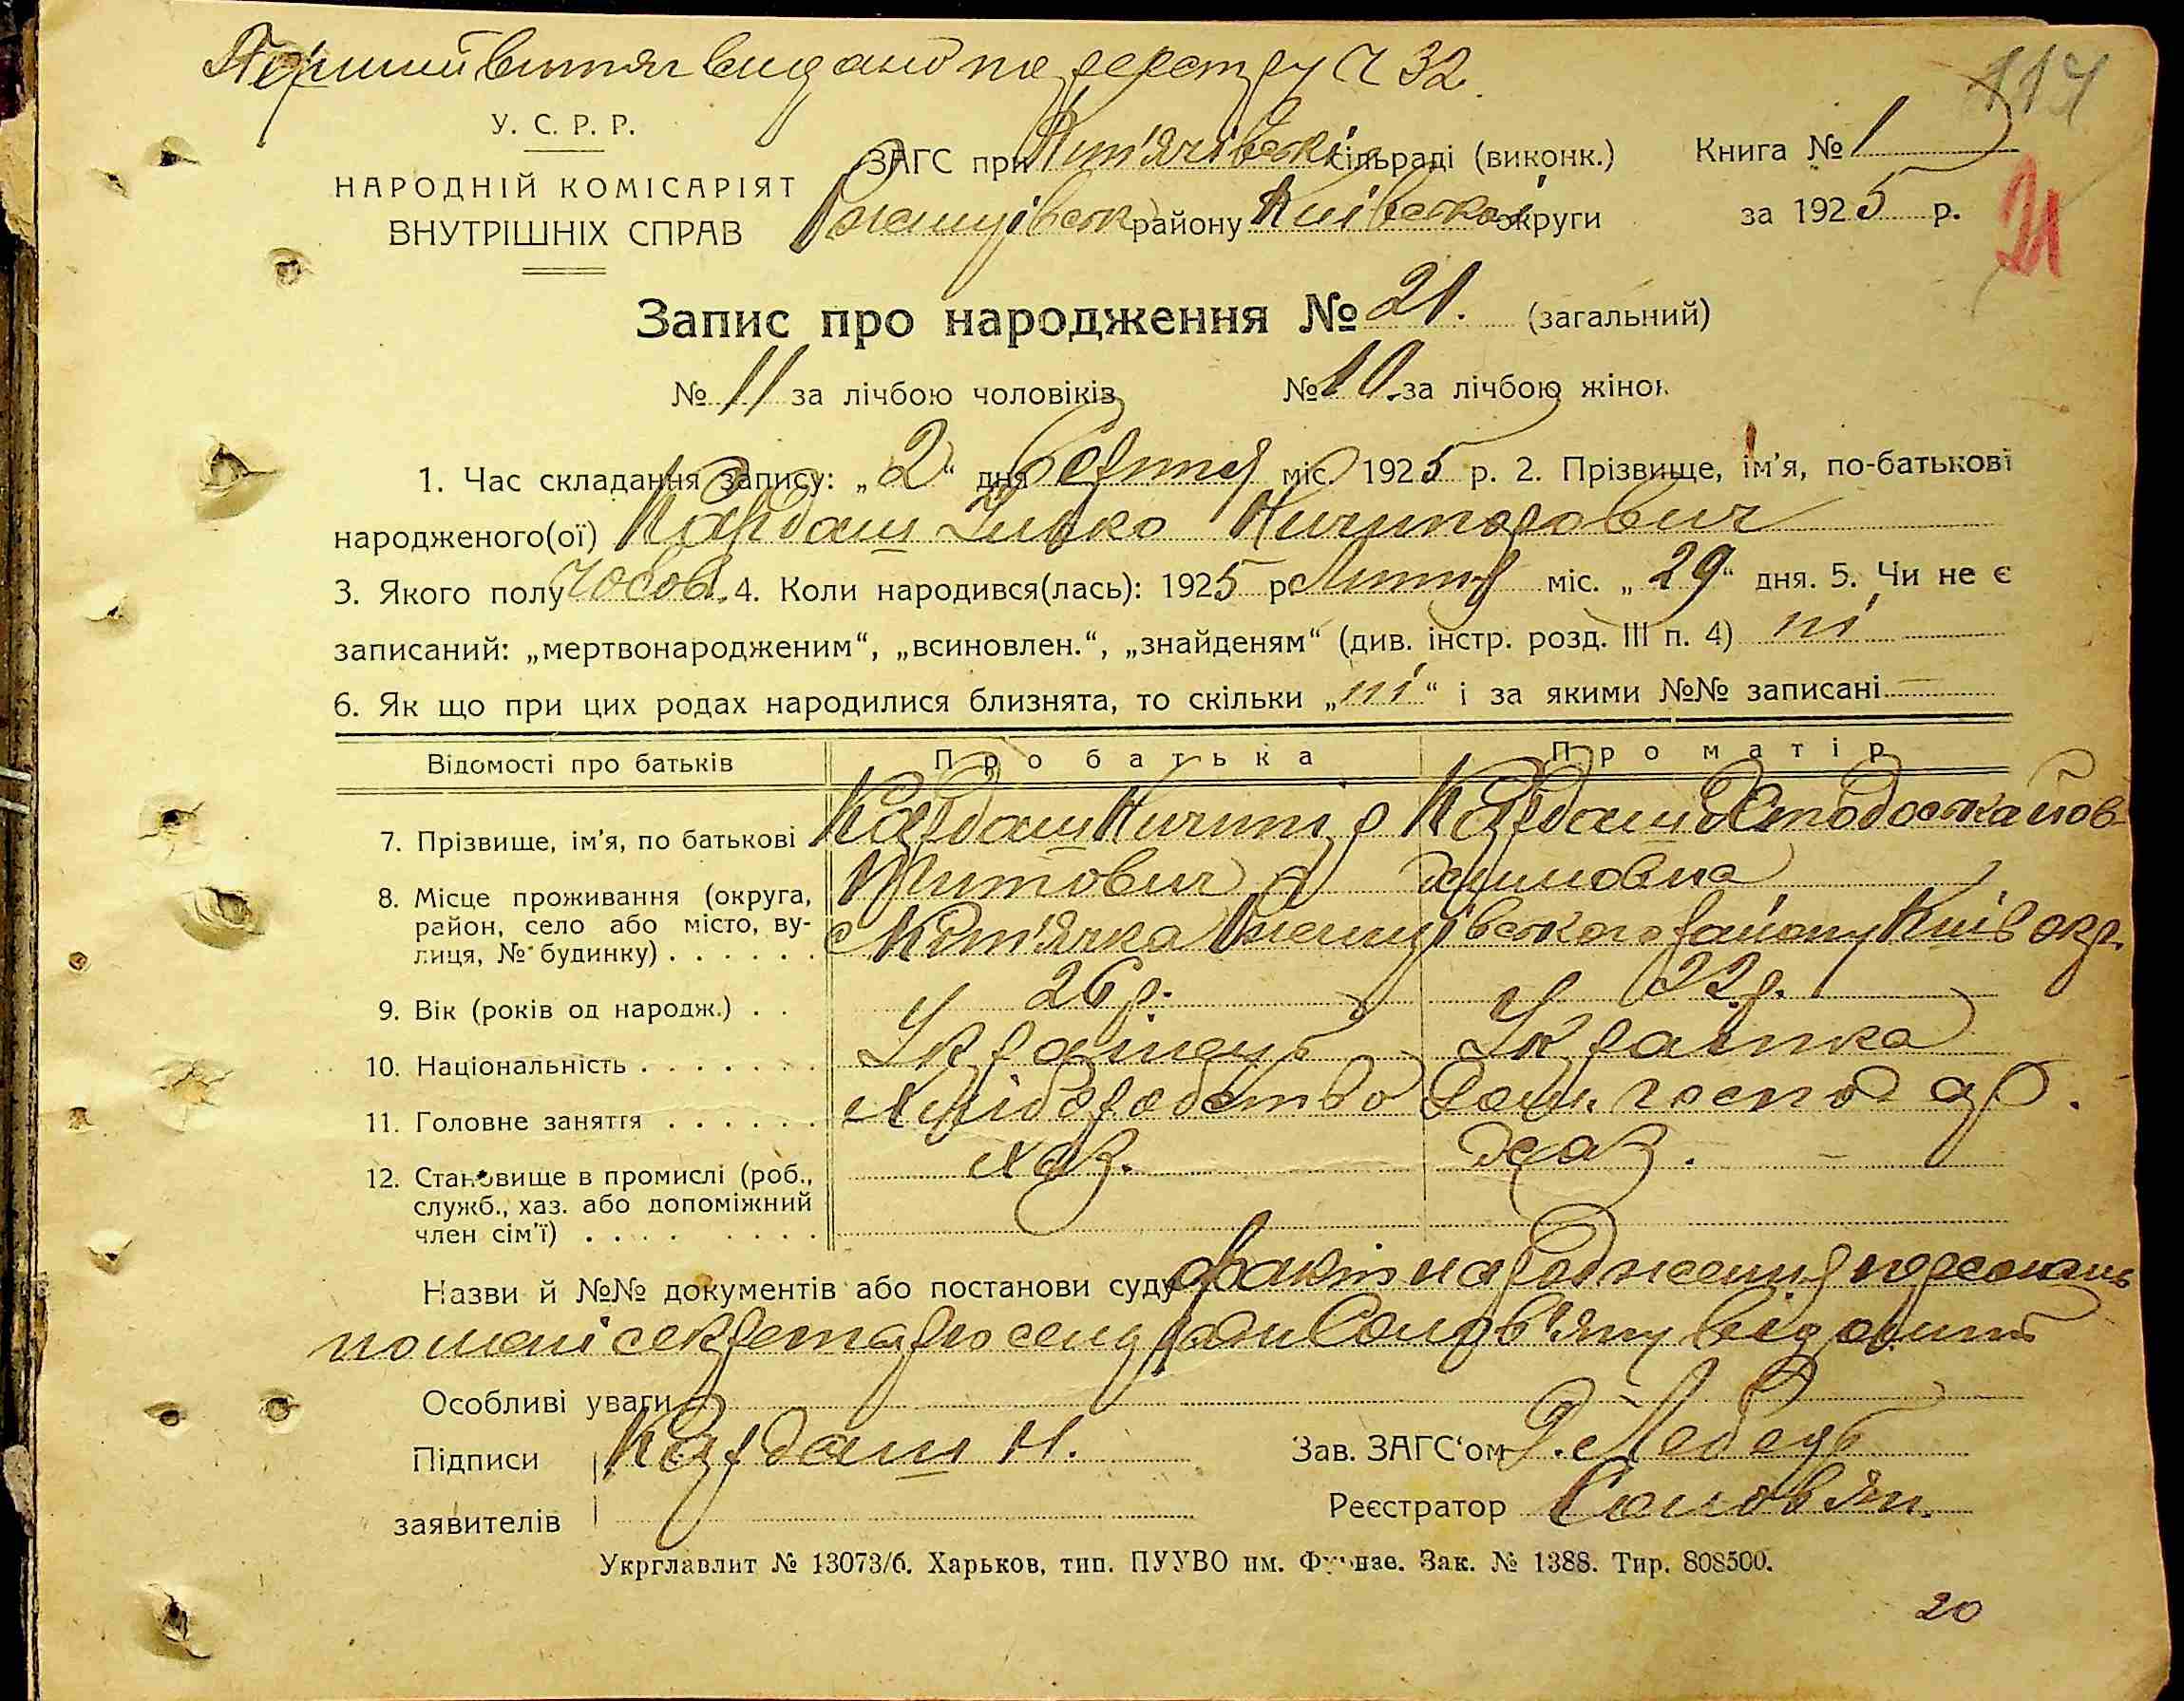 Перший витяг видано по реєстру Ч 32.
114
У. С. Р. Р.
НАРОДНІЙ КОМІСАРІЯТ
ВНУТРІШНІХ СПРАВ
ЗАГС при Кип'ячівські сільраді (виконк.)
району Київської округи
Книга № 1
за 1925 р.
21
Запис про народження № 21. (загальний)
№ 11 за лічбою чоловіків № 10 за лічбою жінок
1. Час складання запису: „2“ дня міс. 1925 р. 2. Прізвище, ім'я, по-батькові
народженого(ої) Кардаш Ничипорович
3. Якого полу чолов. 4. Коли народився(лась): 1925 р. Липня міс. „29“ дня. 5. Чи не є
записаний: „мертвонародженим“, „всиновлен.“, „знайденям“ (див. інстр. розд. III п. 4) ні
6. Як що при цих родах народилися близнята, то скільки „ні“ і за якими №№ записані —
Відомості про батьків Про батька Про матір
7. Прізвище, ім'я, по батькові Кардаш Ничипір Кардаш
Титович
8. Місце проживання (округа,
район, село або місто, ву-
лиця, № будинку) . . . . . . району Київ окр.
9. Вік (років од народж.) . . 26 р. 22 р.
10. Національність . . . . . . . Українець Українка
11. Головне заняття . . . . . . Хліборобство Дом. господар.
12. Становище в промислі (роб.,
служб., хаз. або допоміжний
член сім'ї) . . . . хаз. хаз. —
Назви й №№ документів або постанови суду факт народження персонально
мені секретарю сельради Солов'яну відомий
Особливі уваги
Підписи Кардаш Н. Зав. ЗАГС'ом Лебедь
заявителів Реєстратор Солов'ян.
Укрглавлит № 13073/б. Харьков, тип. ПУУВО им. Фрунзе. Зак. № 1388. Тир. 808500.
20